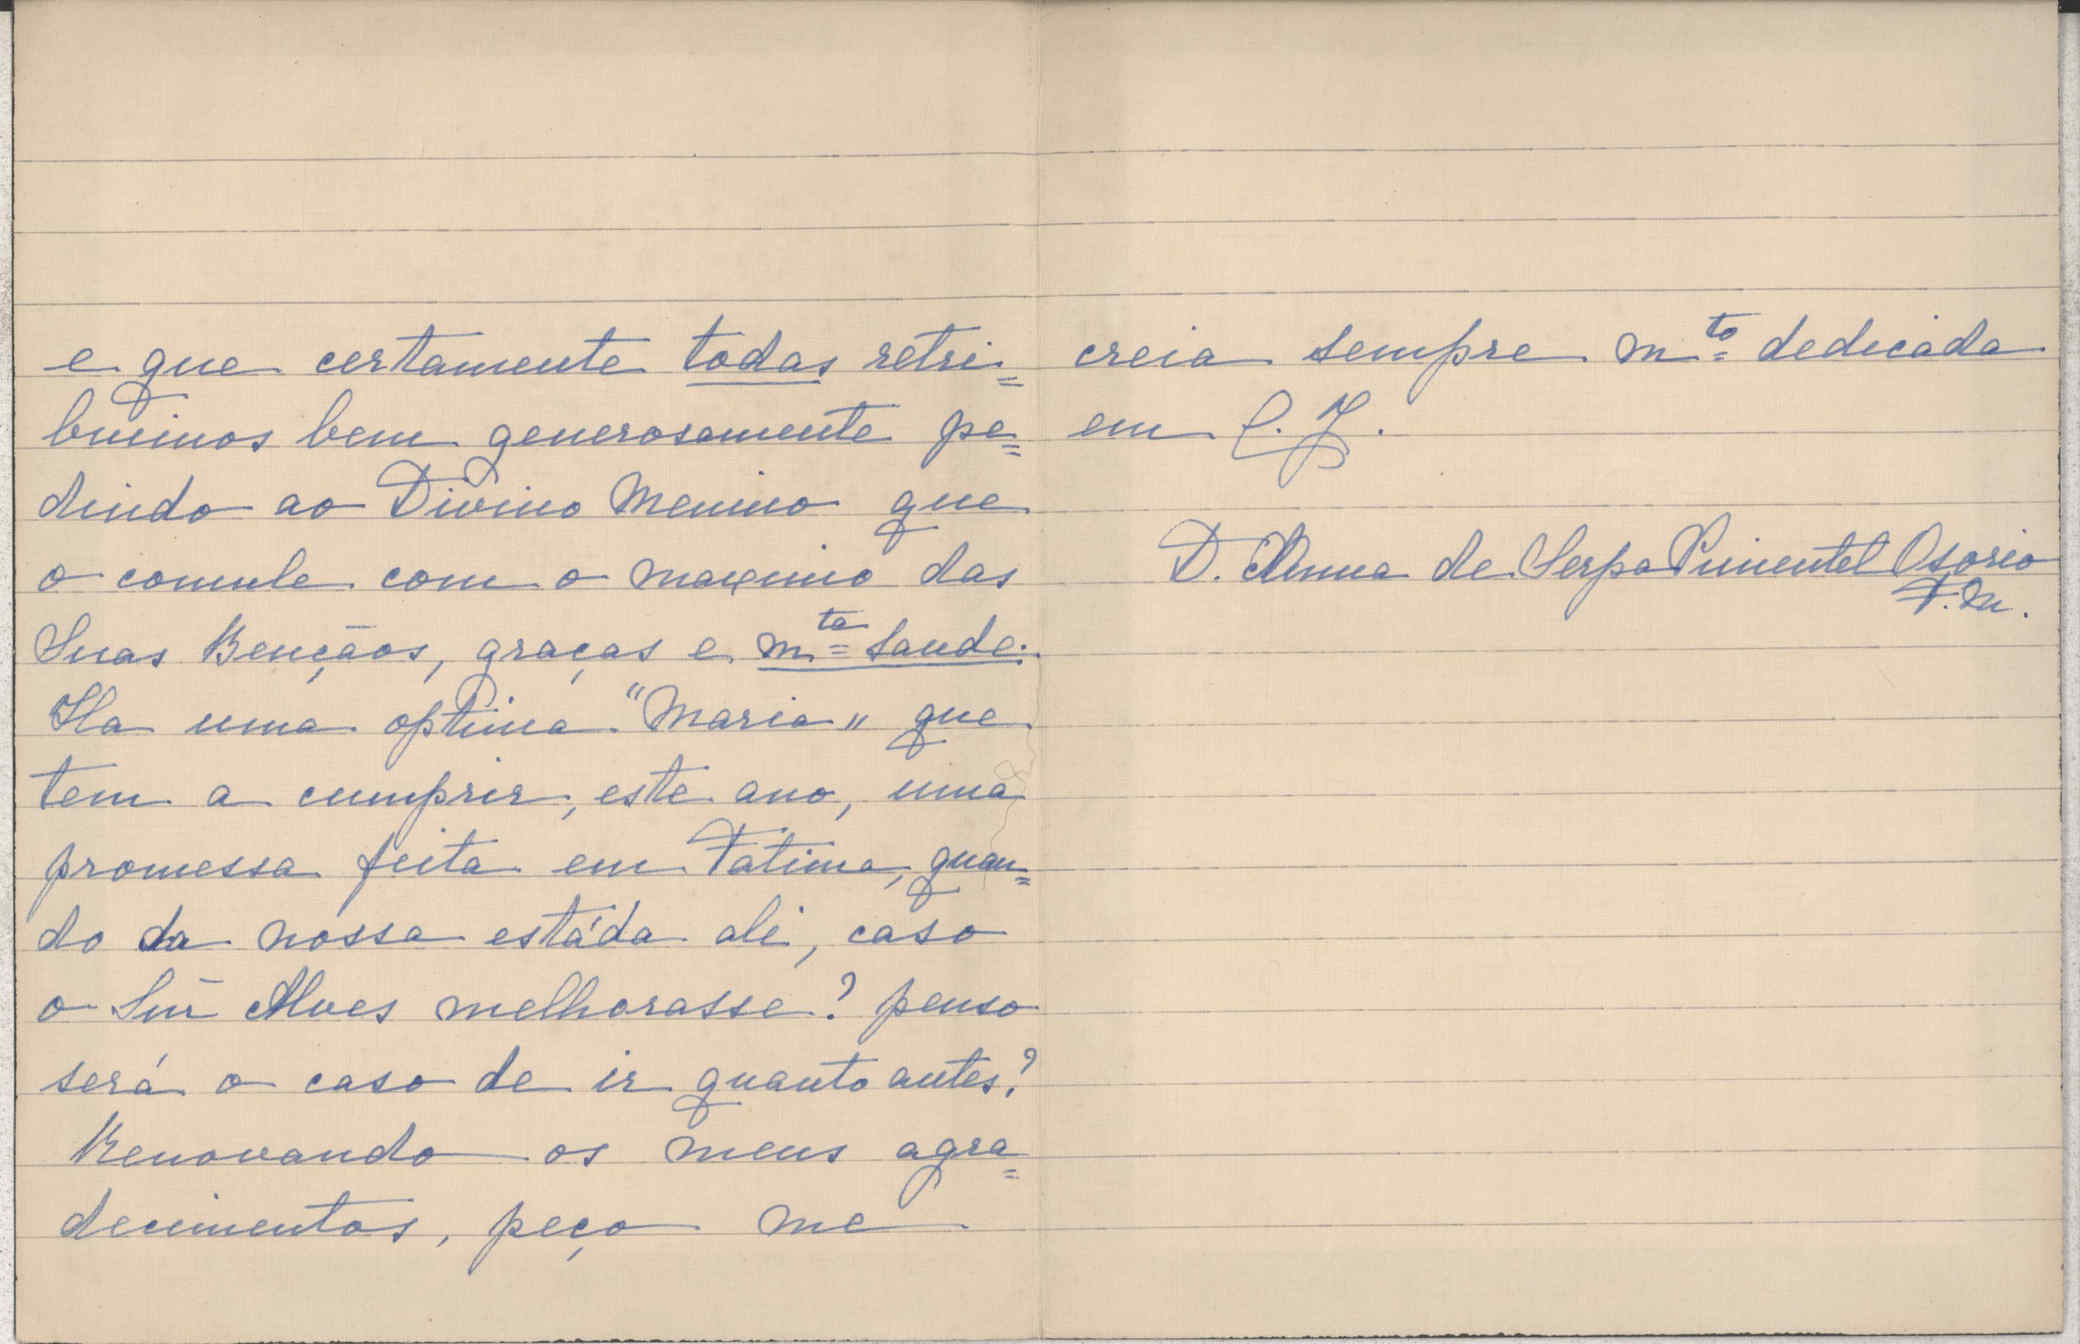 e que certamente todas retri=
buimos bem generosamente pe=
dindo ao Divino Menino que
o comule com o maximo das
Suas Bençãos, graças e mta= saude.
Ha uma optima "Maria" que
tem a cumprir, este ano, uma
promessa feita em Fatima, quan=
do da nossa estáda ali, caso
o Snr Alves melhorasse? penso
será o caso de ir quanto antes?
Renovando os meus agra=
decimentos, peço me
creia sempre mto= dedicada
em C. J.
D. Anna de Serpa Pimentel Osorio
F. M.